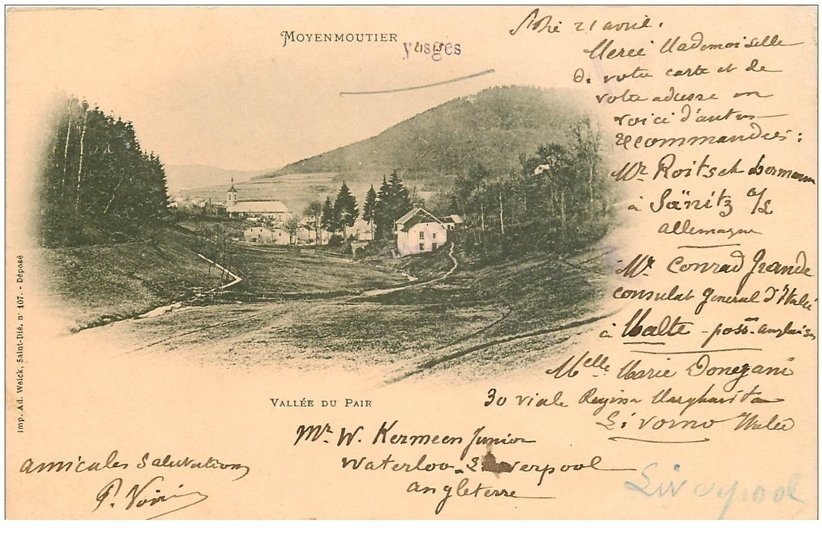 MOYENMOUTIER
Vosges
21 avril.
Merci Mademoiselle
de votre carte et de
votre adresse en
voici d'autres
recommandées:
Mr Roitsch Hermann
à Sänitz a/L
Allemagne
Mr Conrad Grande
consulat general d'Italie
à Malte - poss. anglaise
Melle Marie Donegani
30 viale Regina Margharita
Livorno Italie
VALLÉE DU PAIR
Mr W. Kermeen Junior
Waterloo - Liverpool
Angleterre
Liverpool
amicales salutations
Imp. Ad. Weick, Saint-Dié, nº 107. - Déposé